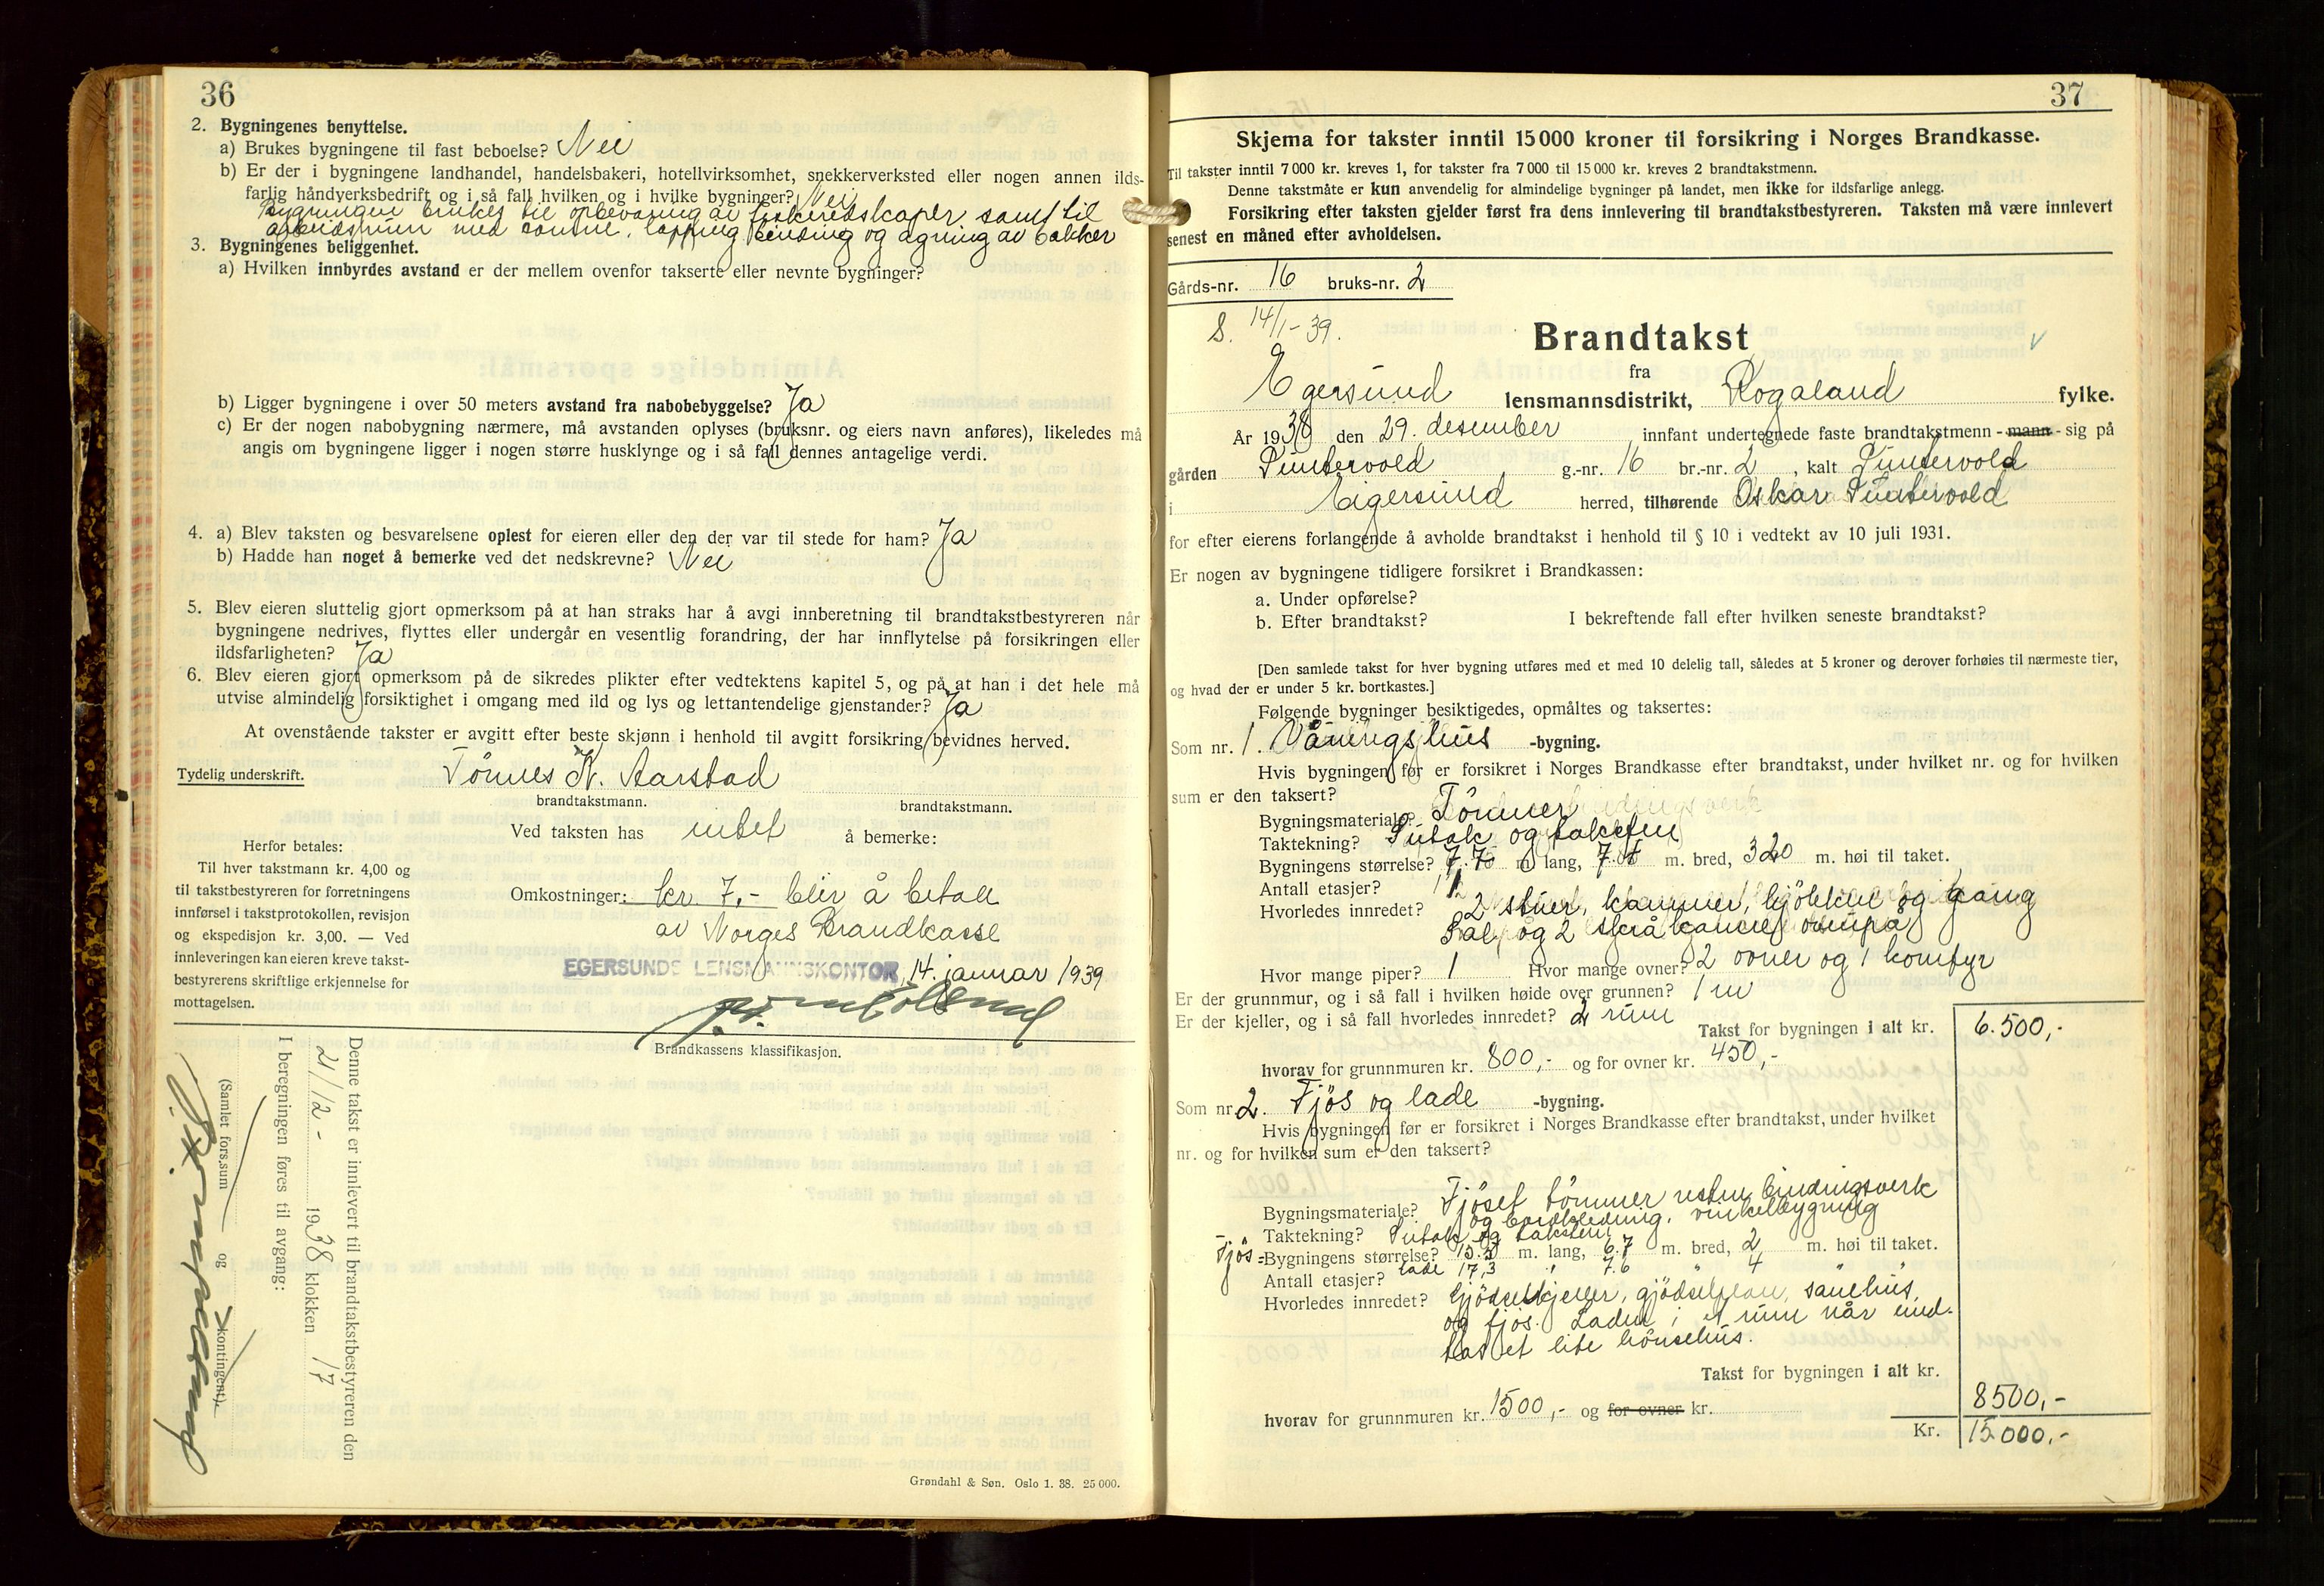 36
2. Bygningenes benyttelse.
a) Brukes bygningene til fast beboelse? Nei
b) Er der i bygningene landhandel, handelsbakeri, hotellvirksomhet, snekkerverksted eller nogen annen ilds-
farlig håndverksbedrift og i så fall hvilken og i hvilke bygninger? Nei
Bygningen brukes til opbevaring av fiskeredskaper samt til
arbeidsrum med
og egning av bakker
3. Bygningenes beliggenhet.
a) Hvilken innbyrdes avstand er der mellem ovenfor takserte eller nevnte bygninger?
b) Ligger bygningene i over 50 meters avstand fra nabobebyggelse? Ja
c) Er der nogen nabobygning nærmere, må avstanden oplyses (bruksnr. og eiers navn anføres), likeledes må
angis om bygningene ligger i nogen større husklynge og i så fall dennes antagelige verdi.
4. a) Blev taksten og besvarelsene oplest for eieren eller den der var til stede for ham? Ja
b) Hadde han noget å bemerke ved det nedskrevne? Nei
5. Blev eieren sluttelig gjort opmerksom på at han straks har å avgi innberetning til brandtakstbestyreren når
bygningene nedrives, flyttes eller undergår en vesentlig forandring, der har innflytelse på forsikringen eller
ildsfarligheten? Ja
6. Blev eieren gjort opmerksom på de sikredes plikter efter vedtektens kapitel 5, og på at han i det hele må
utvise almindelig forsiktighet i omgang med ild og lys og lettantendelige gjenstander? Ja
At ovenstående takster er avgitt efter beste skjønn i henhold til avgitt forsikring bevidnes herved.
Tydelig underskrift. Tönnes K. Aarstad
brandtakstmann. brandtakstmann.
Ved taksten has intet å bemerke:
Herfor betales:
Til hver takstmann kr. 4,00 og
til takstbestyreren for forretningens
innførsel i takstprotokollen, revisjon
og ekspedisjon kr. 3,00. — Ved
innleveringen kan eieren kreve takst-
bestyrerens skriftlige erkjennelse for
mottagelsen.
Omkostninger: kr. 7,- blir å betale
av Norges Brandkasse
EGERSUNDS LENSMANNSKONTOR, 14. januar 1939
Brandkassens klassifikasjon.
Denne takst er innlevert til brandtakstbestyreren den
21/12 - 1938 klokken 17
I beregningen føres til avgang:
(Samlet fors.sum og kontingent).
Grøndahl & Søn. Oslo 1. 38. 25 000.
37
Skjema for takster inntil 15 000 kroner til forsikring i Norges Brandkasse.
Til takster inntil 7 000 kr. kreves 1, for takster fra 7 000 til 15 000 kr. kreves 2 brandtakstmenn.
Denne takstmåte er kun anvendelig for almindelige bygninger på landet, men ikke for ildsfarlige anlegg.
Forsikring efter taksten gjelder først fra dens innlevering til brandtakstbestyreren. Taksten må være innlevert
senest en måned efter avholdelsen.
Gårds-nr. 16 bruks-nr. 2
S. 14/1-39.
Brandtakst
fra
Egersund lensmannsdistrikt, Rogaland fylke.
År 1938 den 29. desember innfant undertegnede faste brandtakstmenn - mann - sig på
gården Puntervold g.-nr. 16 br.-nr. 2, kalt Puntervold
i Eigersund herred, tilhørende Oskar Puntervold
for efter eierens forlangende å avholde brandtakst i henhold til § 10 i vedtekt av 10 juli 1931.
Er nogen av bygningene tidligere forsikret i Brandkassen:
a. Under opførelse?
b. Efter brandtakst? I bekreftende fall efter hvilken seneste brandtakst?
[Den samlede takst for hver bygning utføres med et med 10 delelig tall, således at 5 kroner og derover forhøies til nærmeste tier,
og hvad der er under 5 kr. bortkastes.]
Følgende bygninger besiktigedes, opmåltes og taksertes:
Som nr. 1. Våningshus -bygning.
Hvis bygningen før er forsikret i Norges Brandkasse efter brandtakst, under hvilket nr. og for hvilken
sum er den taksert?
Bygningsmateriale? Tömmer
Taktekning? Sutak og taksten
Bygningens størrelse? m. lang, m. bred, m. høi til taket.
Antall etasjer? 1
Hvorledes innredet? 2 stuer, kammer, kjökken og gang
Sal og 2 skråkammer ovenpå
Hvor mange piper? 1 Hvor mange ovner? 2 ovner og 1 komfyr
Er der grunnmur, og i så fall i hvilken høide over grunnen? 1 m
Er der kjeller, og i så fall hvorledes innredet? 2 rum
Takst for bygningen i alt kr. 6.500,-
hvorav for grunnmuren kr. 800,- og for ovner kr. 450,-
Som nr 2. Fjös og lade -bygning.
Hvis bygningen før er forsikret i Norges Brandkasse efter brandtakst, under hvilket
nr. og for hvilken sum er den taksert?
Bygningsmateriale? Fjöset tömmer resten bindingsverk
og bordkledning. vinkelbygning
Taktekning? Sutak og taksten
Fjös - Bygningens størrelse? m. lang, 6.7 m. bred, 2 m. høi til taket.
lade 17,3 " 7.6 " 4 " "
Antall etasjer?
Hvorledes innredet? Gjödselkjeller, sauehus,
og fjös. Laden i et rum når und-
tas et lite hönsehus.
Takst for bygningen i alt kr. 8500,-
hvorav for grunnmuren kr. 1500,- og for ovner kr.
Kr. 15000,-